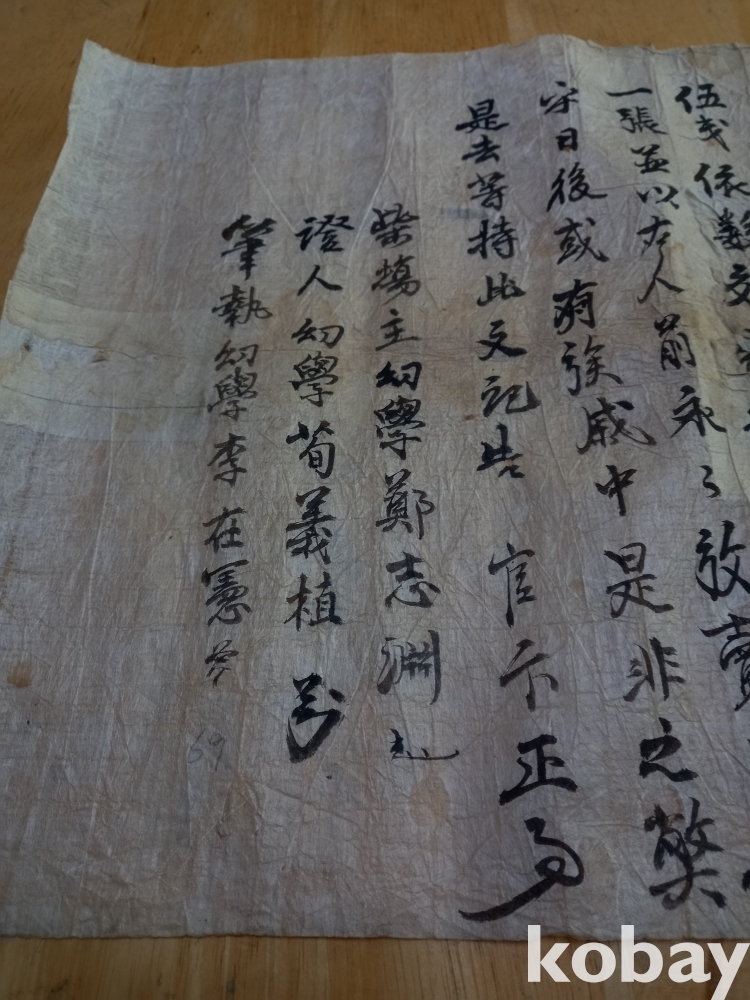 伍戔依數交
一張並以右人前永々放賣
宗日後或有族戚中是非之弊
是去等持此文記告 官卞正事
柴塲主幼學鄭志淵
證人幼學荀義植
筆執幼學李在憲
69
kobay